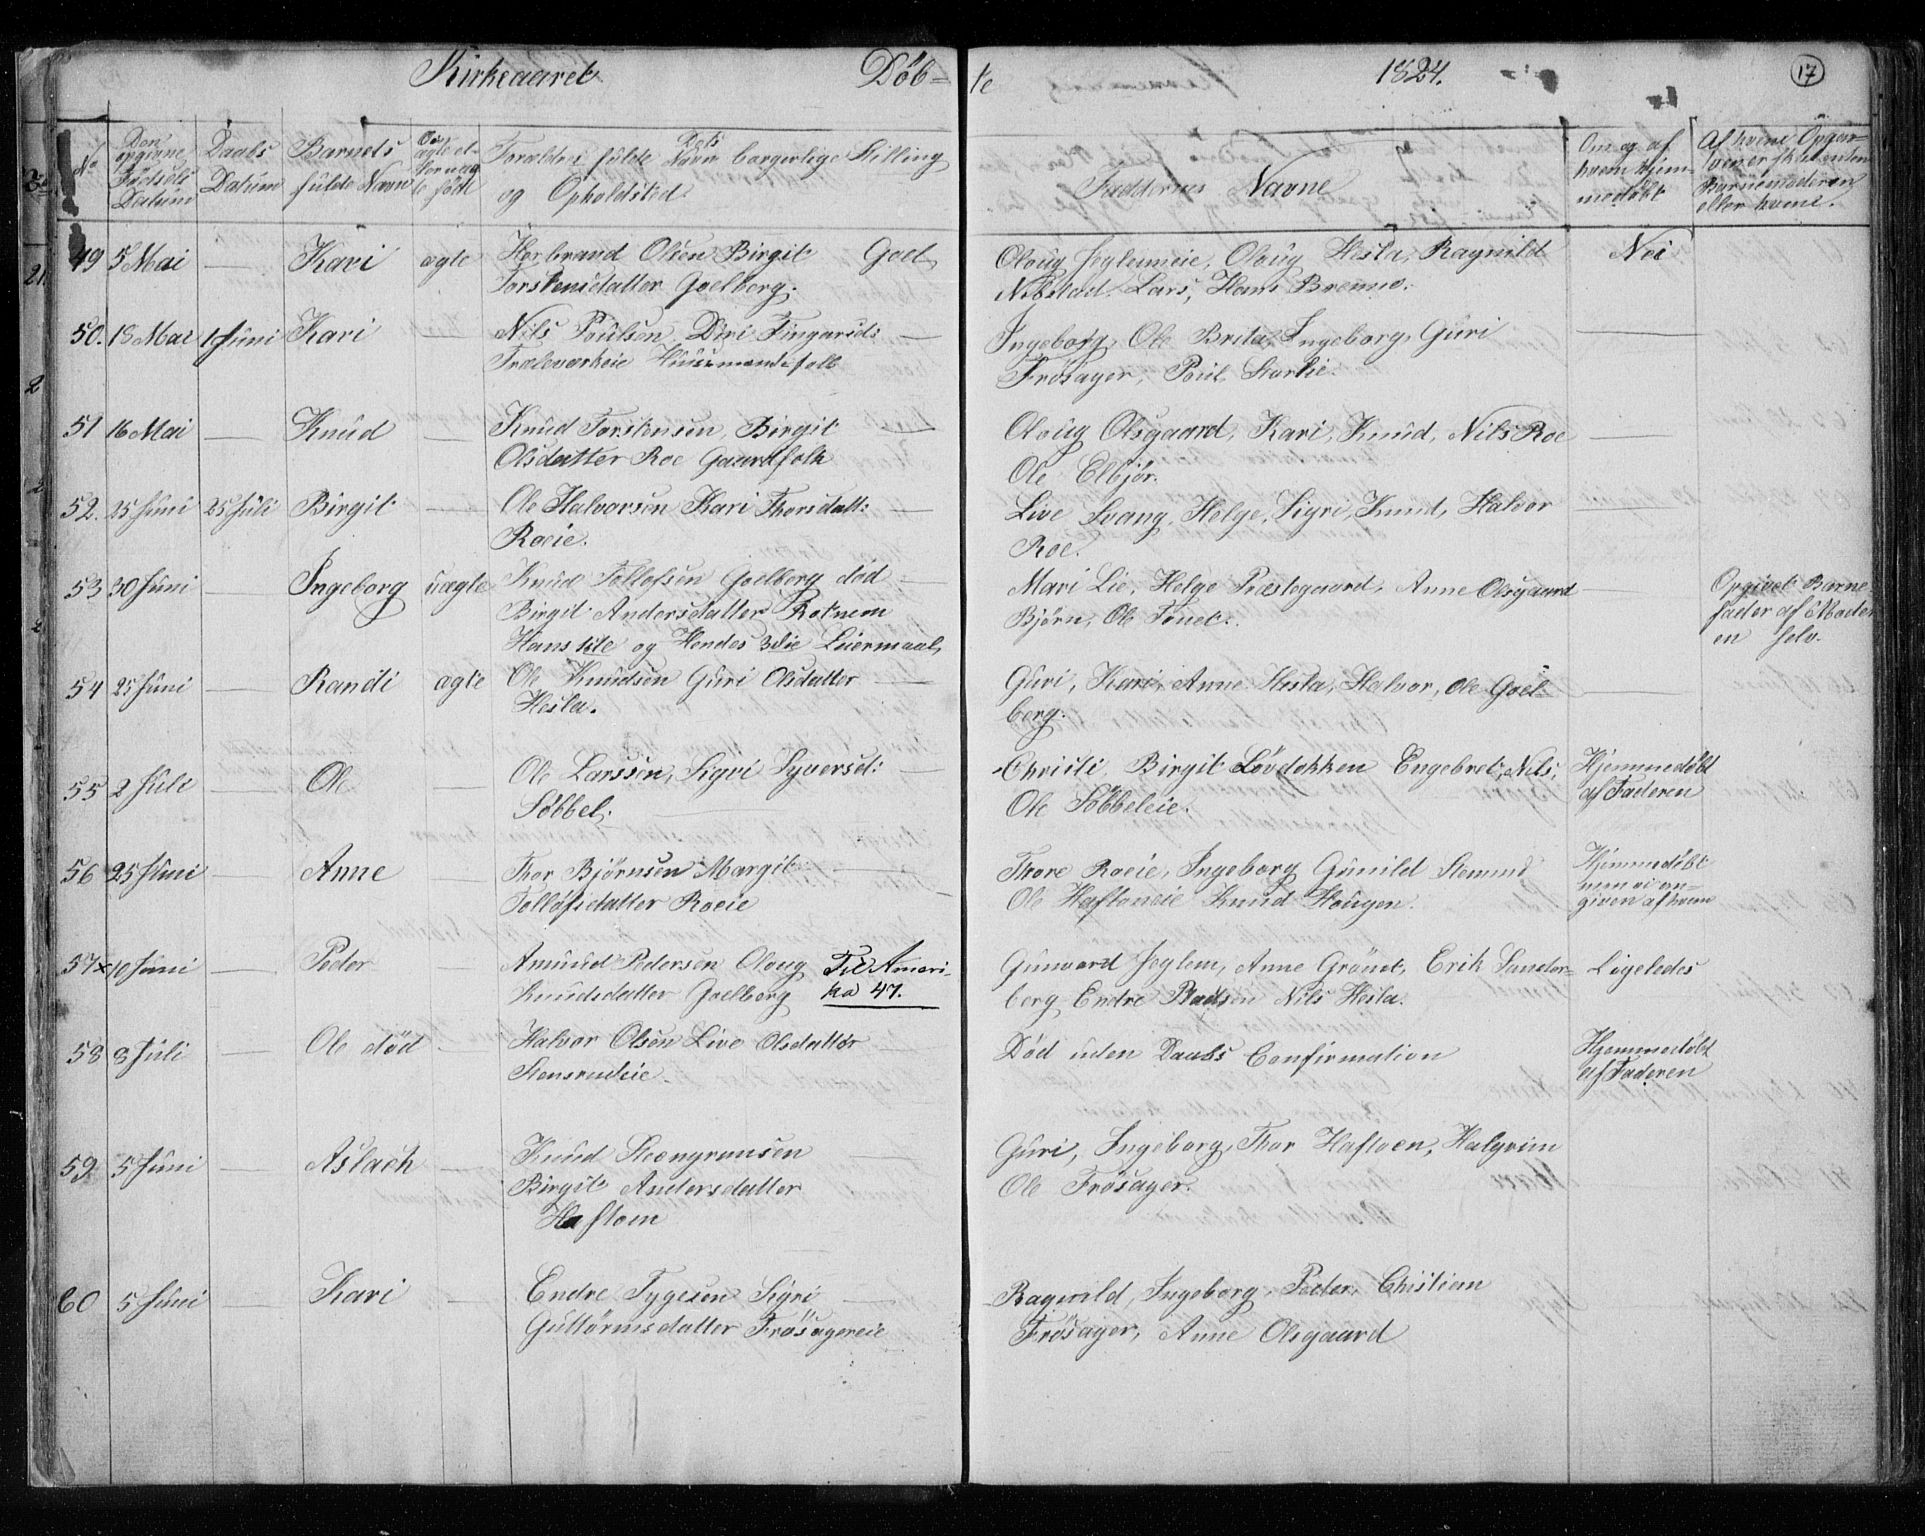 Kirkeaaret Døb= te 1824. 17
No
Den opgivne Fødsels Datum
Daabs Datum
Barnets fulde Navn
Om ægte el. født
Forældres fulde Navn borgerlige Stilling
og Opholdsted
Faddernes Navne
Om og af hvem hjem-
medøbt
49 5 Mai — Kari ægte Herbrand Olsen Birgit Goel
Torstensdatter Goelberg.
Oloug Jeglumeie, Oloug Hesla, Ragnild
Nibstad. Lars, Hans Brenno.
Nei
50. 18 Mai 1 Juni Kari — Nils Poulsen, Diri Fingarsd: —
Huusmandsfolk
Ingeborg, Ole Brita, Ingeborg, Guri
Frøsager, Poul Storlie.
51 16 Mai — Knud — Knud Torstensen, Birgit —
Olsdatter Roe Gaardfolk
Oloug Olsgaard, Kari, Knud, Nils Roe
Ole Elbjør.
52. 25 Juni 25 Juli Birgit — Ole Halvorsen Kari Thorsdatt: —
Roeie.
Live Svang, Helge, Sigri, Knud, Halvor
Roe.
53 30 Juni — Ingeborg uægte Knud Tollefsen Goelberg død —
Birgit Andersdatter Rotnem
Hans 1ste og Hendes 3die Leiermaal,
Mari Lie, Helge Præstegaard, Anne Olsgaard
Bjørn, Ole Tonet.
Opgivet Barne
fader af Moder
en selv.
54 25 Juni — Randi ægte Ole Knudsen Guri Olsdatter —
Hesla.
Guri, Kari, Anne Hesla, Halvor, Ole Goel-
berg.
55 2 Juli — Ole — Ole Larssen, Sigri Syversd: —
Søbbel.
Christi Birgit Løvdokken Engebret, Nils,
Ole Søbbeleie.
Hjemmedøbt
af Faderen
56 25 Juni — Anne — Thor Bjørnsen Margit
Tollefsdatter Roeie —
Thore Roeie, Ingeborg Gunild
Ole Haftoneie Knud Hougen.
Hjemmedøbt
men ei an=
given af hvem
57 x 10 Juni — Peder — Amund Pedersen Oloug Til Ameri-
Knudsdatter Goelberg ka 47.
Gunvord Jeglem, Anne Grönet, Erik Sander=
berg Endre Nils Hesla.
Ligeledes
58 8 Juli — Ole død — Halvor Olsen Live Olsdatter
Stensrudeie.
Død uden Daabs Confirmation
Hjemmedøbt
af Faderen
59 5 Juni — Aslach — Knud Steengrunsen —
Birgit Andersdatter
Haftoen
Guri, Ingeborg, Thor Haftoen, Halgrim
Ole Frøsager.
60 5 Juni — Kari — Endre Tygesen Sigri —
Guttormsdatter Frøsagereie
Ragnild, Ingeborg, Peder, Christian
Frøsager, Anne Olsgaard